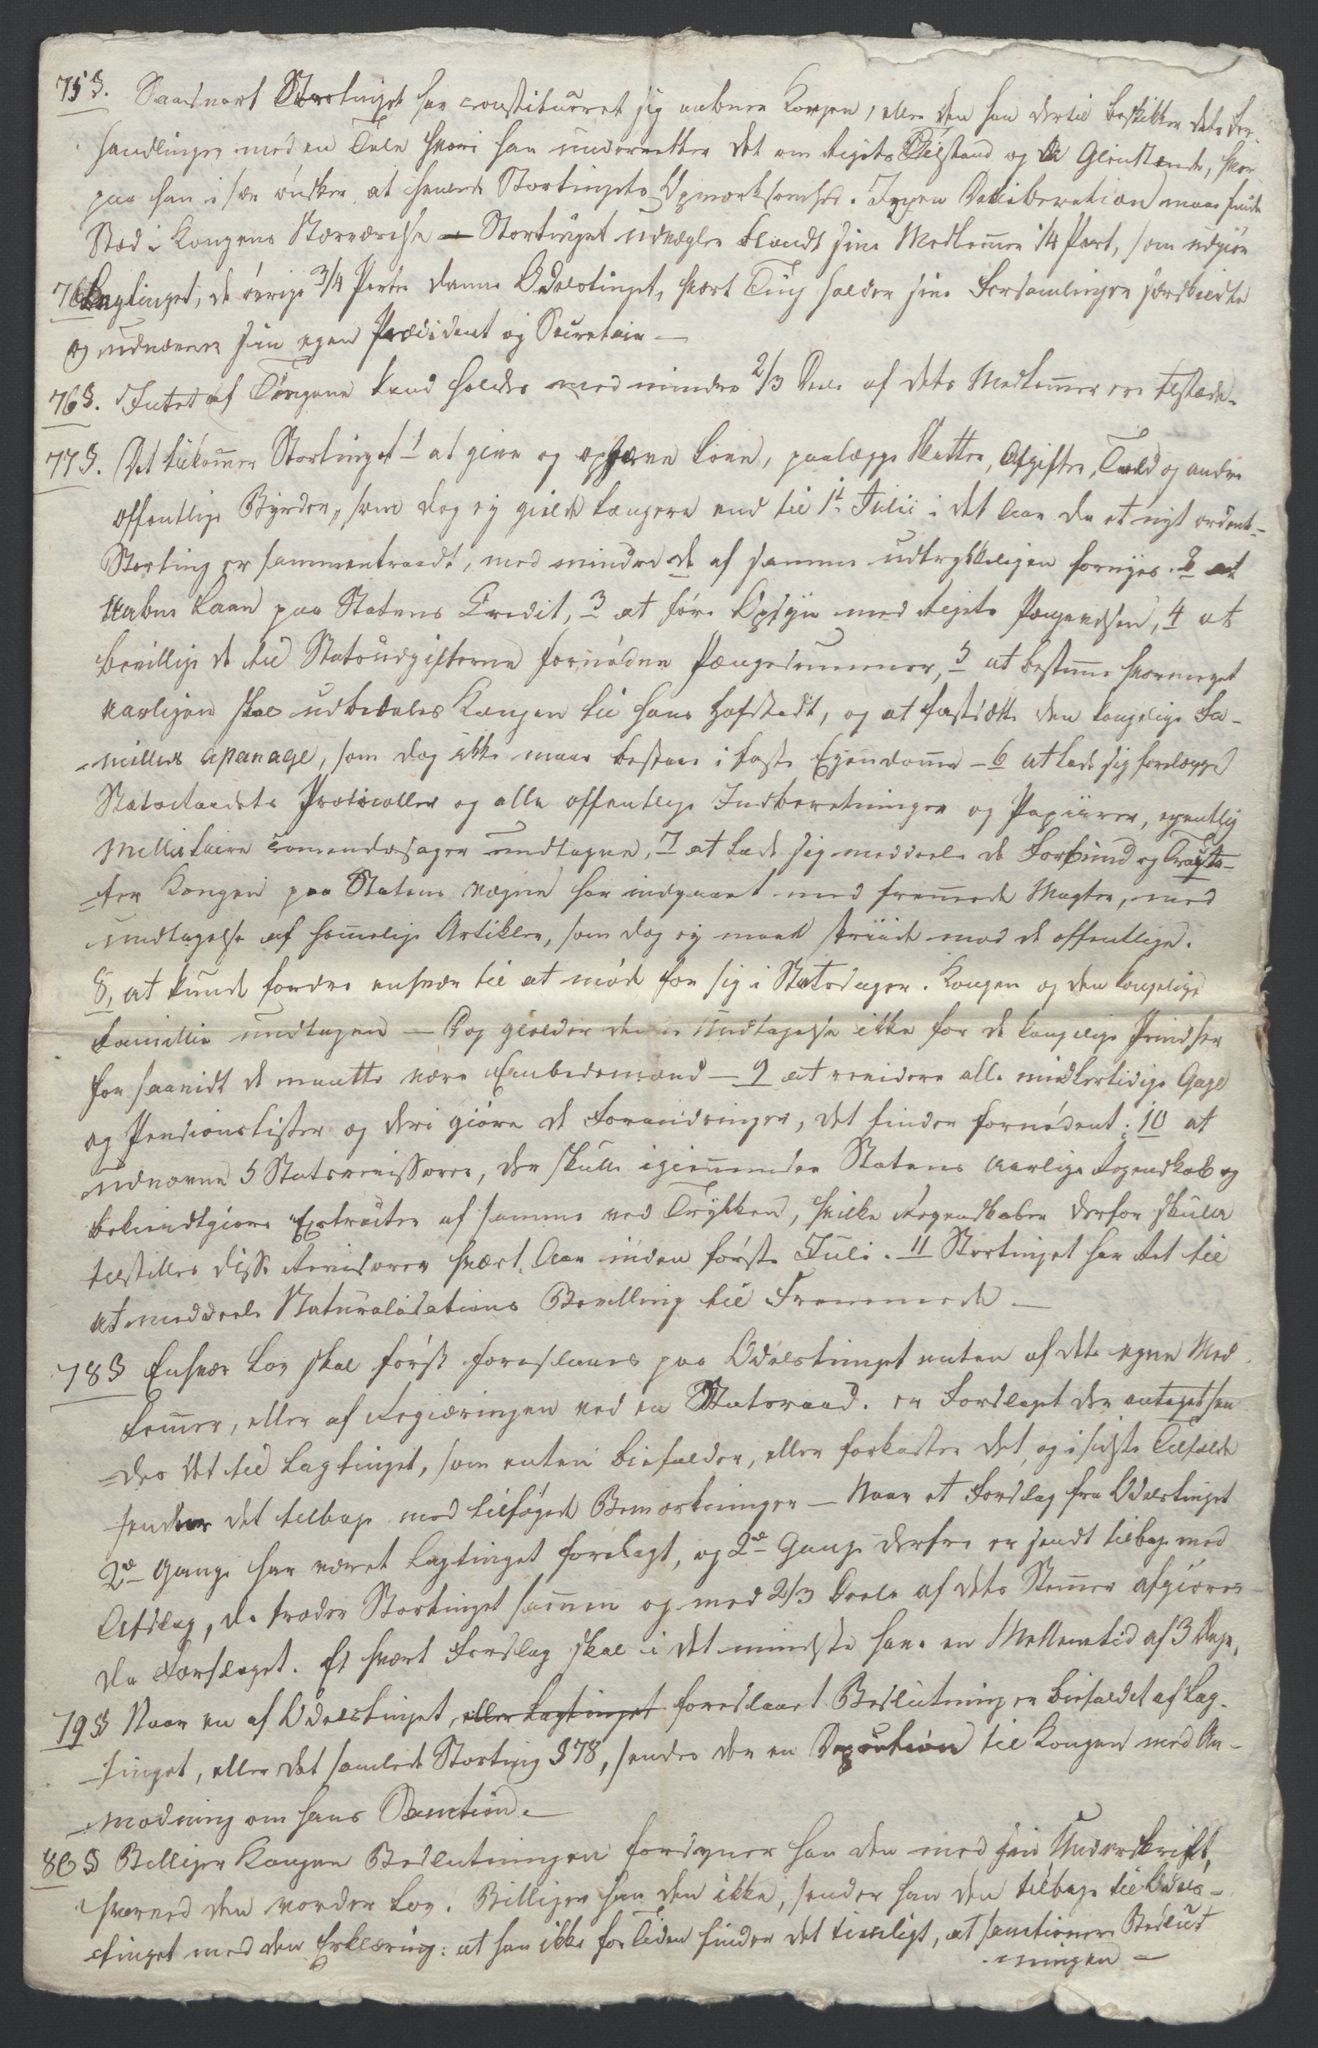 75 §. Saasnart Stortinget har constitueret sig aabner Kongen, eller den han dertil beskikker dets For-
handlinger med en Tale hvori han underretter det om Rigets Tilstand og de Gienstande, hvor-
paa han i sær ønsker at henlede Stortingets Opmærksomhed. Ingen Deliberation maae finde
Sted i Kongens Nærværelse — Stortinget udvælger blandt sine Medlemmer 1/4 Part, som udgiør
Lagtinget, de øvrige 3/4 Parter danne Odelstinget, hvert Ting holder sine Forsamlinger særskildte
og udnævner sin egen Præsident og Secretair —
76 §. Intet af Tingene kand holdes med mindre 2/3 Dele af dets Medlemmer ere tilstæde.
77 §. Det tilkommer Stortinget 1 at give og ophæve Love, paalægge Skatter, Afgifter, Told og andre
offentlige Byrder, som dog ej gielde længere end til 1t Julii i det Aar da et nyt ordentl-
Storting er sammentraadt, med mindre de af samme udtrykkeligen fornyes. 2 at
aabne Laan paa Statens Credit, 3 at føre Opsyn med Rigets Pengevesen, 4 at
bevillige de til Statsudgifterne fornødne Pængesummer, 5 at bestemme hvormeget
aarligen skal udbetales Kongen til hans Hofstadt, og at fastsætte den kongelige Fa-
-milies Apanage, som dog ikke maae bestaae i faste Ejendomme - 6 at lade sig forelægge
Statsraadets Protocoller og alle offentlige Indberetninger og Papiirer, egentlig
Millitaire Comendosager undtagne, 7 at lade sig meddele de Forbund og Tracta-
-ter Kongen paa Statens vegne har indgaaet med fremmede Magter, med
undtagelse af hemmelige Artikler, som dog ej maae striide mod de offentlige.
8, at kunde fordre enhver til at møde for sig i Statssager. Kongen og den kongelige
Familie undtagen — Dog gielder denne Undtagelse ikke for de kongelige Prindser
for saavidt de maatte være Embedsmænd — 9 at revidere alle midlertidige Gage
og Pensionslister og deri giøre de Forandringer, det finder fornødent; 10 at
udnævne 5 Statsrevisorer, der skulle igiennemsee Statens Aarlige Regnskab og
bekiendtgiøre Extracter af samme ved Trykken, hvilke Regnskaber derfor skulle
tilstilles disse Revisorer hvert Aar inden første Juli. 11 Stortinget har Ret til
at meddeele Naturalisations Bevilling til Fremmede —
78 § Enhver Lov skal først foreslaaes paa Odelstinget enten af dets egne Med-
lemmer, eller af Regieringen ved en Statsraad. er Forslaget der antaget sen-
-des det til Lagtinget, som enten bifalder, eller forkaster det, og i sidste Tilfælde
sender det tilbage med tilføyede Bemærkninger — Naar et Forslag fra Odelstinget
2de Gange har været Lagtinget forelagt, og 2de Gange derfra er sendt tilbage med
Afslag, da træder Stortinget sammen og med 2/3 Deele af dets Stemmer afgiøres
da Forslaget. Et hvert Forslag skal i det mindste have en Mellemtid af 3 Dage,
79 § Naar en af Odelstinget, eller Lagtinget foreslaaet Beslutning er bifaldet af Lag-
-tinget, eller det samlede Storting § 78, sendes der en Deputation til Kongen med An-
-modning om hans Sanction. —
80 § Billiger Kongen Beslutningen forsyner han den med sin Underskrift,
hvorved den vorder Lov. Billiger han den ikke, sender han den tilbage til Odels-
-tinget med den Erklæring: at han ikke for Tiden finder det tienligt, at sanctionere Beslut
-ningen —